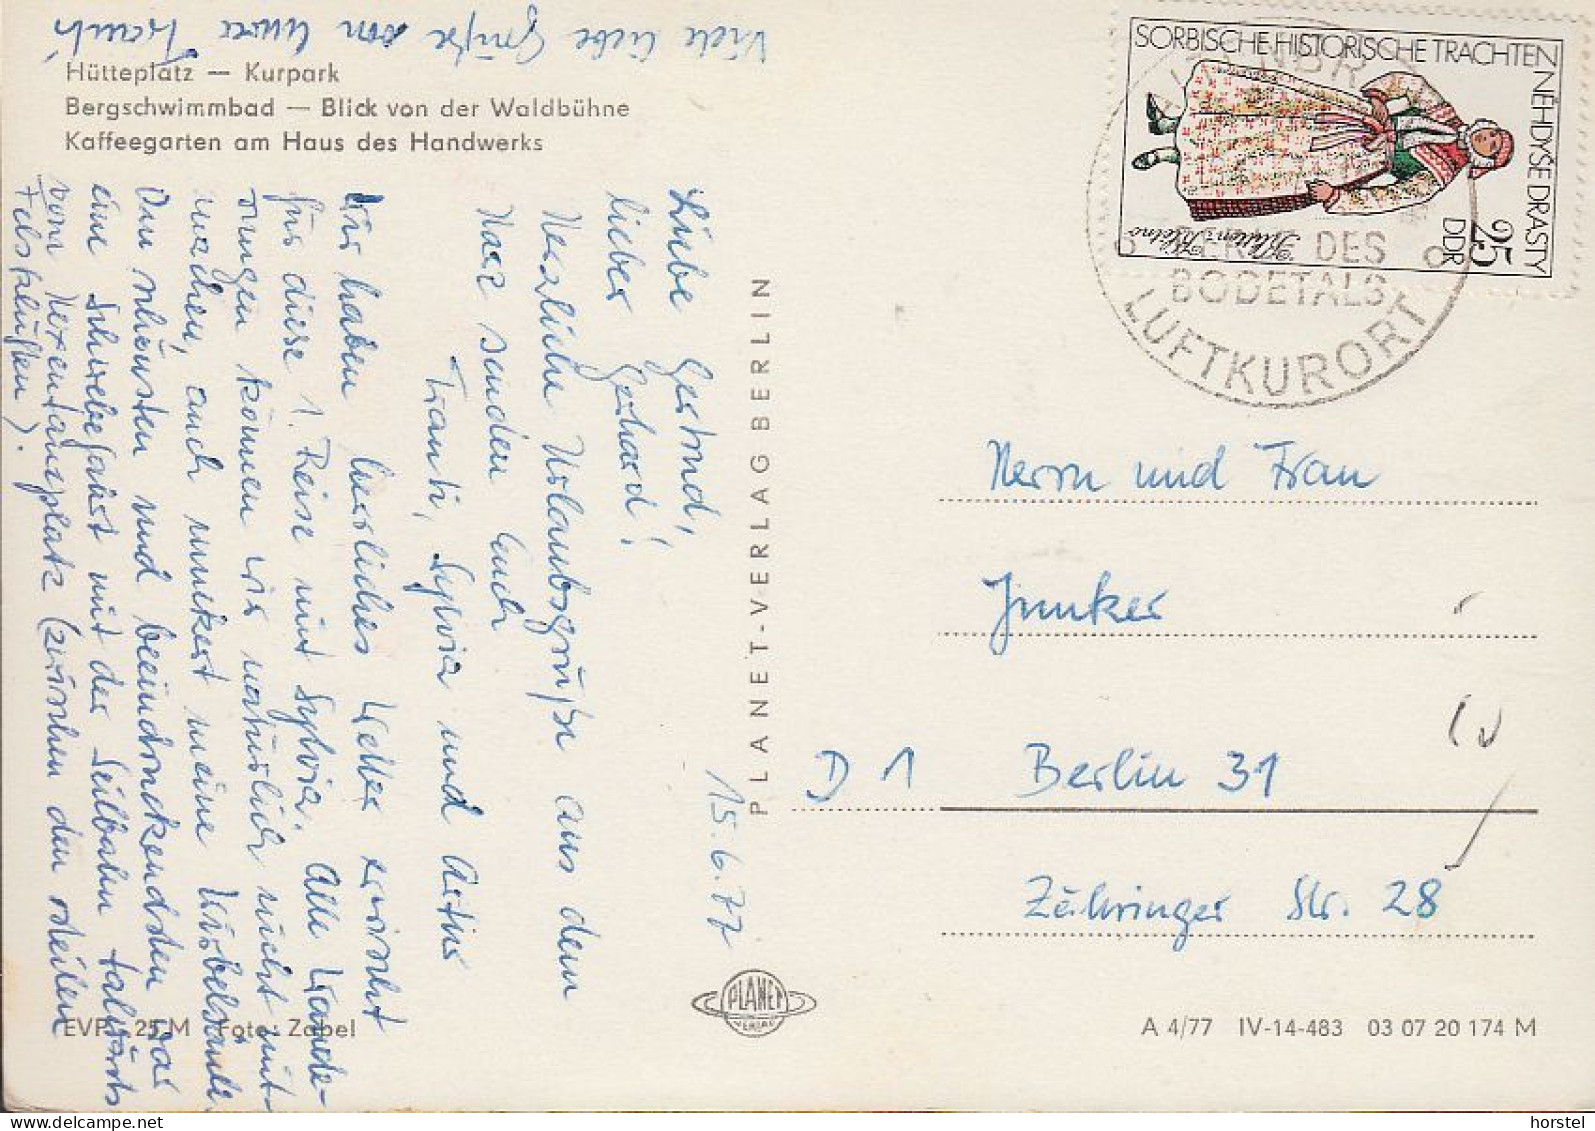 Viele liebe Grüße von Eurer Trauti
Hütteplatz — Kurpark
Bergschwimmbad — Blick von der Waldbühne
Kaffeegarten am Haus des Handwerks
15.6.77
Liebe Gertrud,
lieber Gerhard!
Herzliche Urlaubsgrüße aus dem
Harz senden Euch
Trauti, Sylvia und Artur
Wir haben herrliches Wetter erwischt
für diese 1. Reise mit Sylvia. Alle Wande-
rungen können wir natürlich nicht mit-
machen, auch mukert meine Wirbelsäule.
Am schönsten und beeindruckendsten war
eine Schwebefahrt mit der Seilbahn talwärts
vom Hexentanzplatz (zwischen den steilen
Felsklüften).
PLANET-VERLAG BERLIN
SORBISCHE HISTORISCHE TRACHTEN
NĚHDYŠE DRASTY
25
DDR
Klitten · Klětno
DES
BODETALS
LUFTKURORT
Herrn und Frau
Junker
D 1 Berlin 31
Zähringer Str. 28
PLANET
VERLAG
EVP -,25 M Foto: Zabel
A 4/77 IV-14-483 03 07 20 174 M
horstel